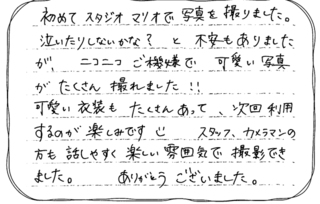 初めて スタジオ マリオで 写真を 撮りました。
泣いたりしないかな? と 不安もありました
が、ニコニコ ご機嫌で 可愛い 写真
が たくさん 撮れました!!
可愛い 衣装も たくさん あって、次回 利用
するのが 楽しみです スタッフ、カメラマンの
方も 話しやすく 楽しい 雰囲気で 撮影でき
ました。 ありがとう ございました。